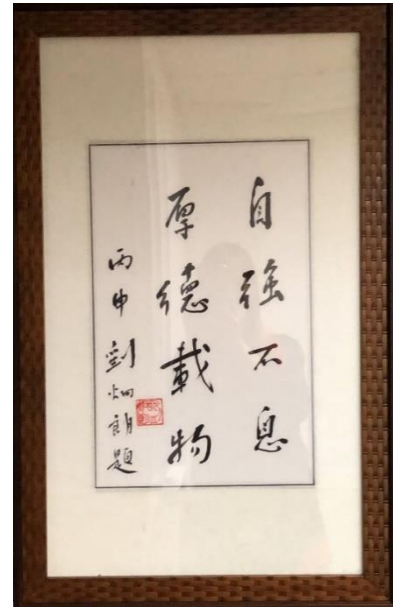 自強不息
厚德載物
丙申 劉炯朗題